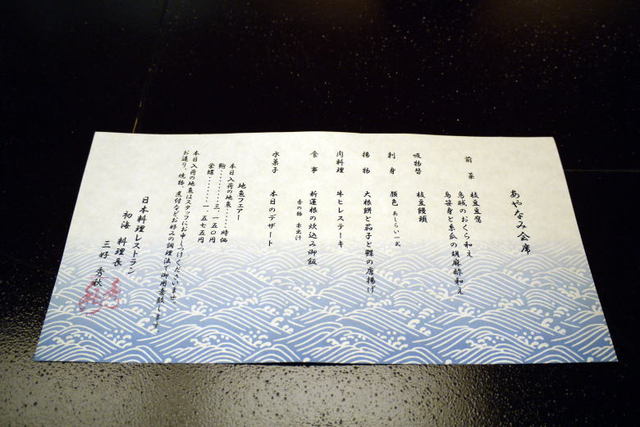 あやなみ会席
前菜 枝豆豆腐
烏賊のおくら和え
鳥笹身と糸瓜の胡麻酢和え
吸物替 枝豆饅頭
刺身 顔色 あしらい一式
揚物 大根餅と茄子と鰹の唐揚げ
肉料理 牛ヒレステーキ
食事 新蓮根の炊込み御飯
香の物 赤出汁
水菓子 本日のデザート
地魚フェアー
本日入荷の地魚……時価
鮑………三、一五〇円
栄螺………一、五七五円
本日入荷の地魚はスタッフにお申しつけくださいませ
お造り、焼物、煮付などお好みの調理法で御用意致します。
日本料理レストラン
初海 料理長
三好 秀秋